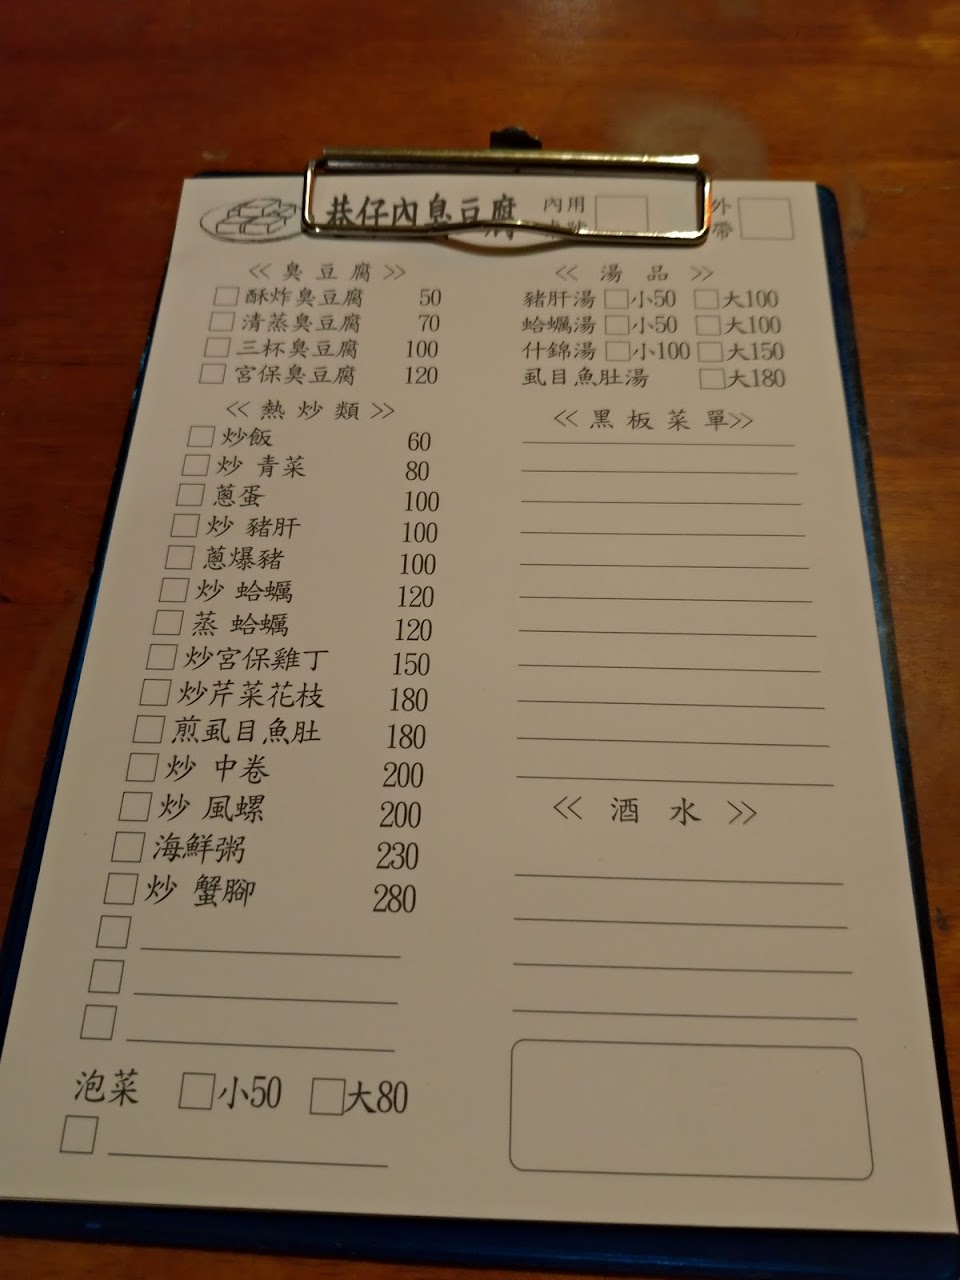 巷仔內臭豆腐
內用
桌號
外
帶
<< 臭豆腐 >>
□酥炸臭豆腐 50
□清蒸臭豆腐 70
□三杯臭豆腐 100
□宮保臭豆腐 120
<< 熱炒類 >>
□炒飯 60
□炒 青菜 80
□蔥蛋 100
□炒 豬肝 100
□蔥爆豬 100
□炒 蛤蠣 120
□蒸 蛤蠣 120
□炒宮保雞丁 150
□炒芹菜花枝 180
□煎虱目魚肚 180
□炒 中卷 200
□炒 風螺 200
□海鮮粥 230
□炒 蟹腳 280
泡菜 □小50 □大80
<< 湯品 >>
豬肝湯 □小50 □大100
蛤蠣湯 □小50 □大100
什錦湯 □小100 □大150
虱目魚肚湯 □大180
<< 黑板菜單 >>
<< 酒水 >>